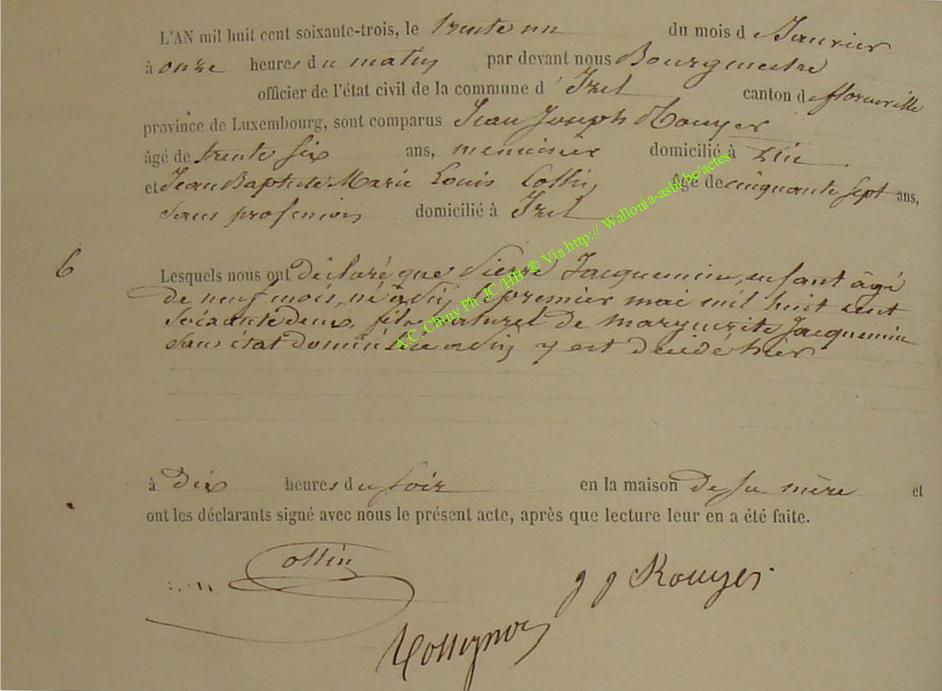 L'AN mil huit cent soixante-trois, le trente un du mois d Janvier
à onze heures du matin par devant nous Bourgmestre
officier de l'état civil de la commune d' Izel canton de florenville
province de Luxembourg, sont comparus Jean Joseph Rouyer
âgé de trente six ans, menuisier domicilié à
et Jean Baptiste Marie Louis Collin, âgé de cinquante sept ans,
sans profession domicilié à Izel
6
Lesquels nous ont déclaré que Pierre Jacquemin, enfant âgé
de neuf mois, né à le premier mai mil huit cent
soixante deux, fils naturel de Marguerite Jacquemin
sans état domiciliée y est décédé hier
à dix heures du soir en la maison de sa mère et
ont les déclarants signé avec nous le présent acte, après que lecture leur en a été faite.
Collin
J J Rouyer
Rossignon
A.C. Chiny Ph JC / HH ® Via http:// Wallonia-asbl.be/actes